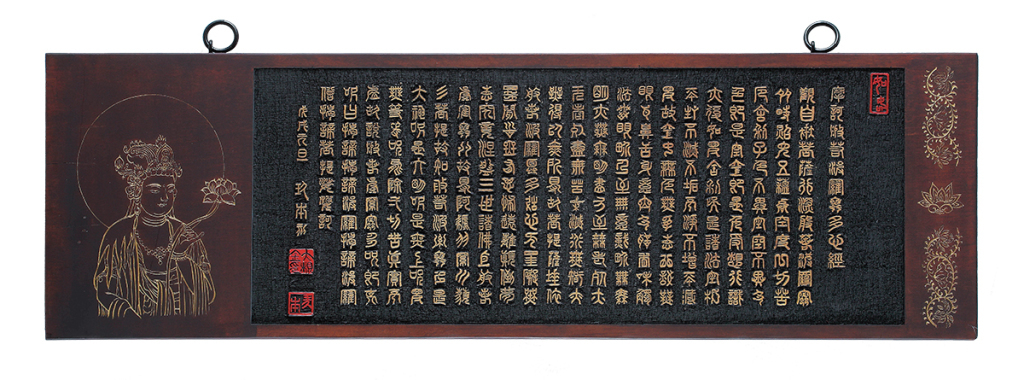 摩訶般若波羅蜜多心經
觀自在菩薩行深般若波羅蜜
多時照見五蘊皆空度一切苦
厄舍利子色不異空空不異色
色即是空空即是色受想行識
亦復如是舍利子是諸法空相
不生不滅不垢不淨不增不減
是故空中無色無受想行識無
眼耳鼻舌身意無色聲香味觸
法無眼界乃至無意識界無無
明亦無無明盡乃至無老死亦
無老死盡無苦集滅道無智亦
無得以無所得故菩提薩埵依
般若波羅蜜多故心無罣礙無
罣礙故無有恐怖遠離顛倒夢
想究竟涅槃三世諸佛依般若
波羅蜜多故得阿耨多羅三藐
三菩提故知般若波羅蜜多是
大神咒是大明咒是無上咒是
無等等咒能除一切苦真實不
虛故說般若波羅蜜多咒即說
咒曰揭諦揭諦波羅揭諦波羅
僧揭諦菩提薩婆訶
戊戌元旦